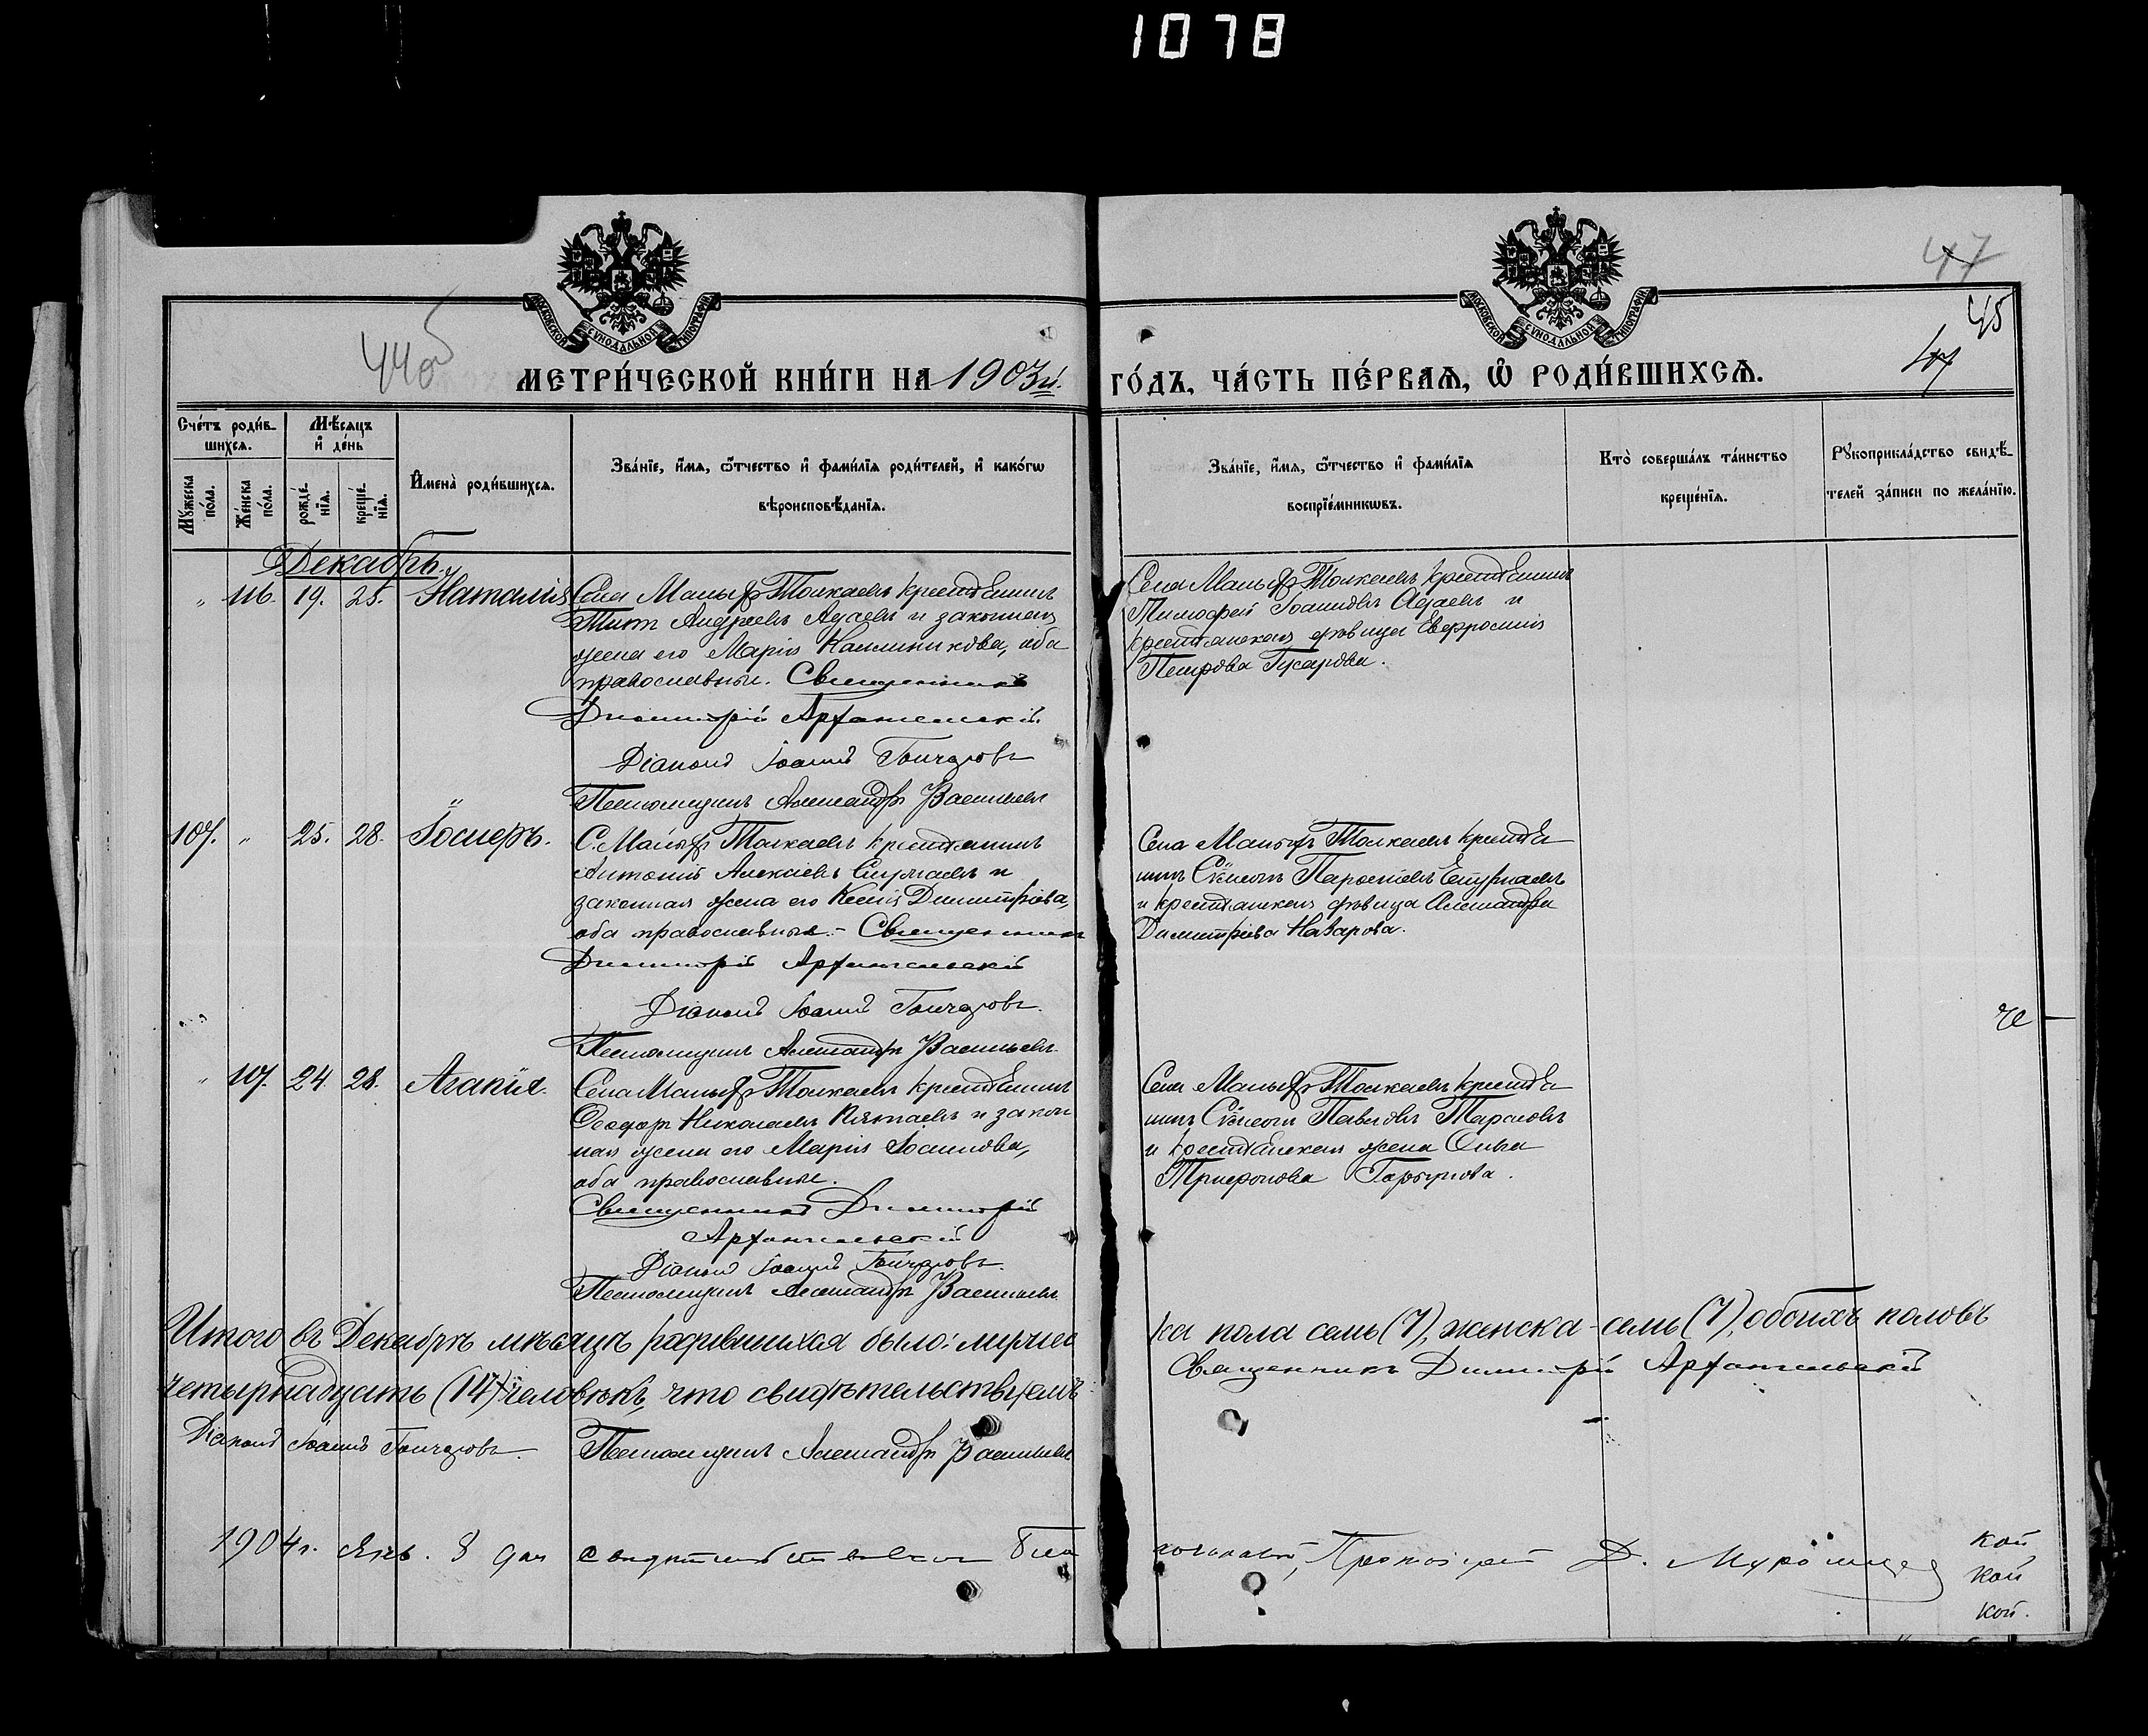 1078
МОСКОВСКОЙ СѴНОДАЛЬНОЙ ТИПОГРАФІИ
МОСКОВСКОЙ СѴНОДАЛЬНОЙ ТИПОГРАФІИ
47
45
44об
МЕТРИ́ЧЕСКОЙ КНИ́ГИ НА 1903й. ГО́ДЪ, ЧА́СТЬ ПЕ́РВАѦ, Ѡ҆ РОДИ́ВШИХСѦ.
Сче́тъ роди́в-
шихсѧ.
Мѣ́сѧцъ
и҆ де́нь
Мꙋжеска
по́ла.
Же́нска
по́ла.
рожде́-
нїѧ.
креще́-
нїѧ.
И҆мена̀ роди́вшихсѧ.
Зва́нїе, и҆́мѧ, ѻ҆́тчество и҆ фами́лїѧ роди́телей, и҆ како́гѡ
вѣроисповѣ́данїѧ.
Зва́нїе, и҆́мѧ, ѻ҆́тчество и҆ фами́лїѧ
воспрїе́мникѡвъ.
Кто̀ соверша́лъ та́инство
креще́нїѧ.
Рꙋкоприкла́дство свидѣ́-
телей за́писи по жела́нїю.
Декабрь.
" 116. 19. 25. Наталія
Села Малыхъ Толкаевъ крестьянинъ
Титъ Андреевъ Адаевъ и законная
жена его Марія Калинникова, оба
православные. Священникъ
Димитрій Архангельскій.
Діаконъ Іоаннъ Гончаровъ
Псаломщикъ Александръ Васильевъ
Села Малыхъ Толкаевъ крестьянинъ
Тимофей Іоанновъ Адаевъ и
крестьянская дѣвица Евфросинія
Петрова Гусарова.
107. " 25. 28. Іосифъ.
С. Малыхъ Толкаевъ крестьянинъ
Антоній Алексіевъ и
законная жена его Ксенія Димитріева,
оба православные. - Священникъ
Димитрій Архангельскій
Діаконъ Іоаннъ Гончаровъ.
Псаломщикъ Александръ Васильевъ.
Села Малыхъ Толкаевъ крестья
нинъ Сѵмеонъ
и крестьянская дѣвица Александра
Димитріева Назарова.
" 117. 24. 28. Агапія.
Села Малыхъ Толкаевъ крестьянинъ
Ѳеодоръ Николаевъ и закон
ная жена его Марія Іоаннова,
оба православные.
Священникъ Димитрій
Архангельскій
Діаконъ Іоаннъ Гончаровъ.
Псаломщикъ Александръ Васильевъ.
Села Малыхъ Толкаевъ крестья
нинъ Сѵмеонъ Павловъ Тарасовъ
и крестьянская жена Ольга
Трифонова Горбунова.
че
Итого въ Декабрѣ мѣсяцѣ родившихся было: мужес
ка пола семь (7), женска - семь (7), обоихъ половъ
четырнадцать (14) человѣкъ, что свидѣтельствуемъ
Священникъ Димитрій Архангельскій
Діаконъ Іоаннъ Гончаровъ. Псаломщикъ Александръ Васильевъ
1904 г. Янв. 8 дня свидѣтельствовалъ Бла
гочинный, Протоіерей Д.
кой
кой
кой.